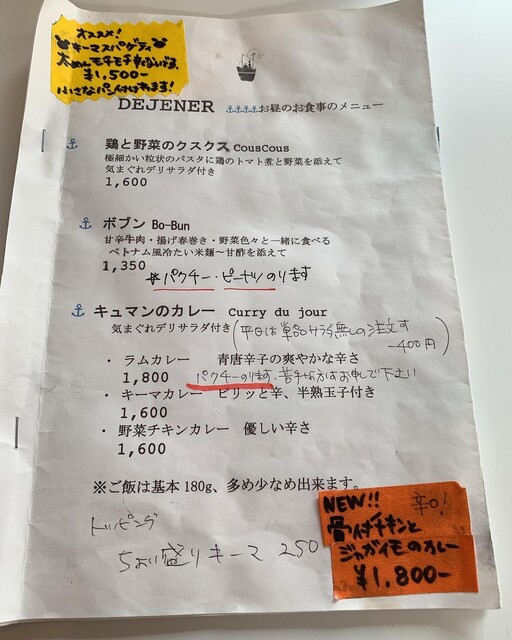 オススメ!
キーマスパゲティ
太めんモチモチ辛ないです。
¥1,500-
小さなパン付けれます!
DEJENER お昼のお食事のメニュー
鶏と野菜のクスクス CousCous
極細かい粒状のパスタに鶏のトマト煮と野菜を添えて
気まぐれデリサラダ付き
1,600
ボブン Bo-Bun
甘辛牛肉・揚げ春巻き・野菜色々と一緒に食べる
ベトナム風冷たい米麺~甘酢を添えて
1,350 #パクチー・ピーナツのります
キュマンのカレー Curry du jour
気まぐれデリサラダ付き (平日は単品サラダ無しの注文す
-400円)
・ ラムカレー 青唐辛子の爽やかな辛さ
1,800 パクチーのります。苦手な方はお申しで下さい
・ キーマカレー ピリッと辛、半熟玉子付き
1,600
・ 野菜チキンカレー 優しい辛さ
1,600
※ご飯は基本180g、多め少なめ出来ます。
トッピング
ちょい盛りキーマ 250
NEW!! 辛口!
骨付チキンと
ジャガイモのカレー
¥1,800-